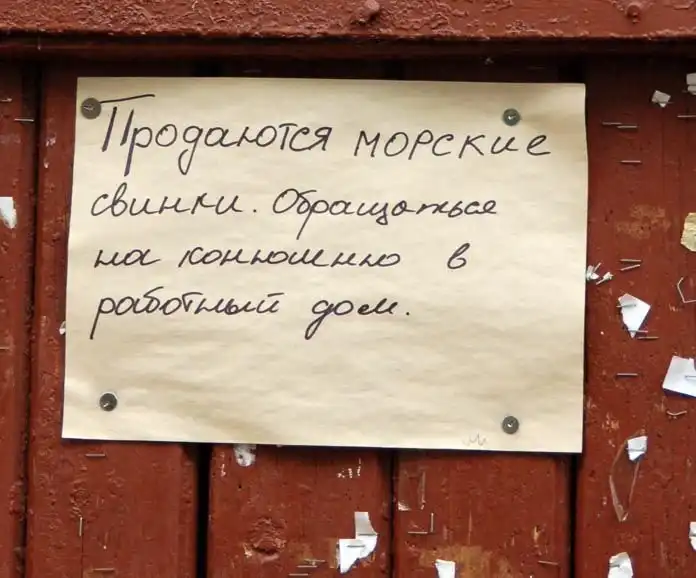 Продаются морские
свинки. Обращаться
на конюшню в
работный дом.